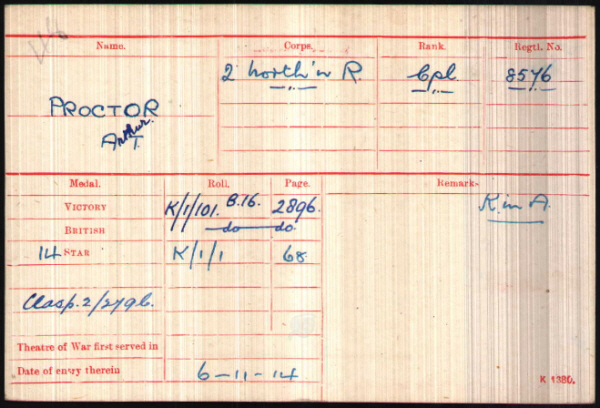 Name. Corps. Rank. Regtl. No.
2 North'n R. Cpl. 8576
PROCTOR
Arthur.
A T.
Medal. Roll. Page. Remarks
VICTORY K/1/101. B.16. 2896. K. in A.
BRITISH do do
14 STAR K/1/1 68
Clasp. 2/2796.
Theatre of War first served in
Date of entry therein 6-11-14
K 1380.